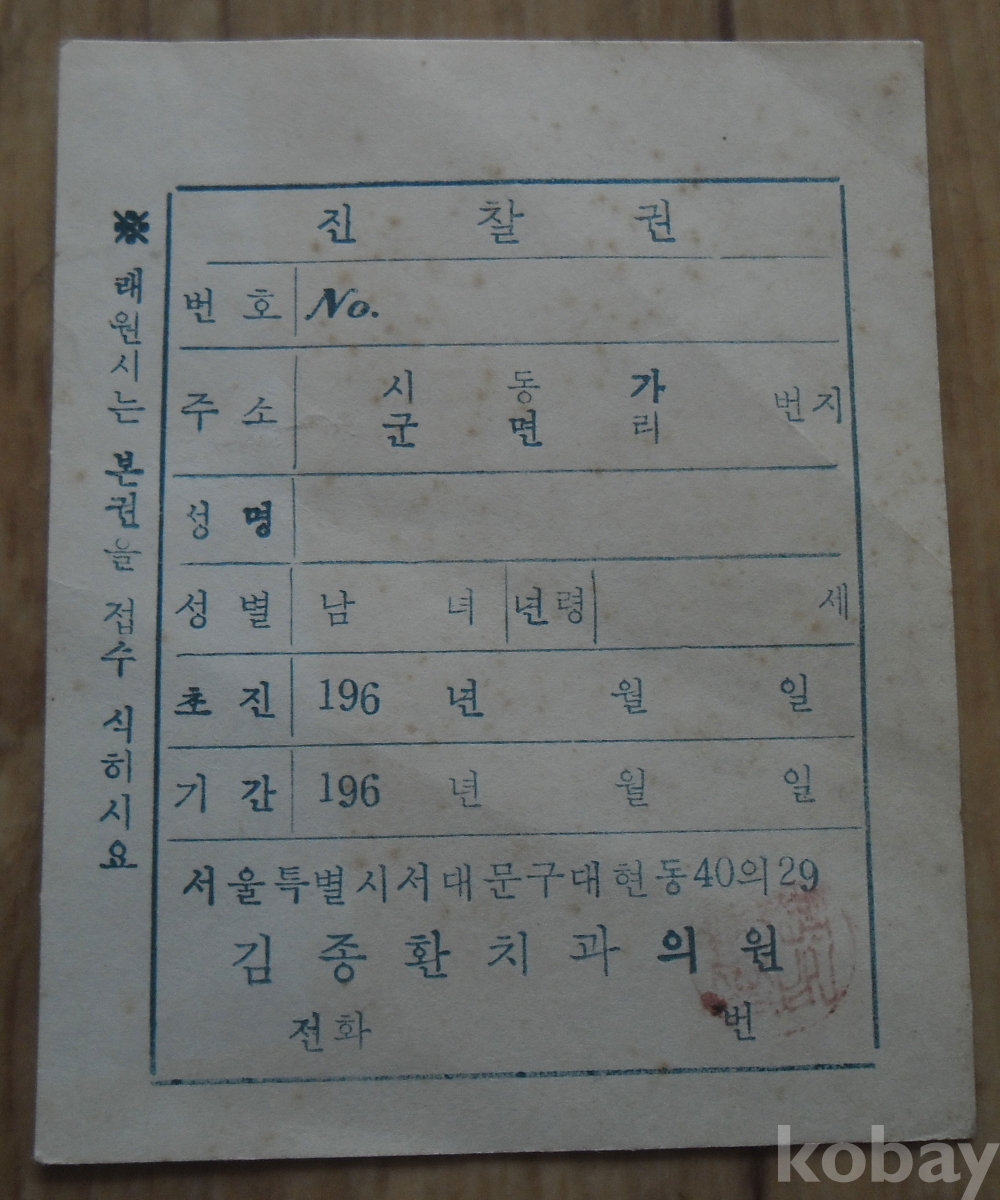 진 찰 권
번 호 No.
주 소 시 동 가 번지
군 면 리
성 명
성 별 남 녀 년령 세
초 진 196 년 월 일
기 간 196 년 월 일
서울특별시서대문구대현동40의29
김종환치과의원
전화 번
※ 래원시는 본권을 접수 식히시요
kobay